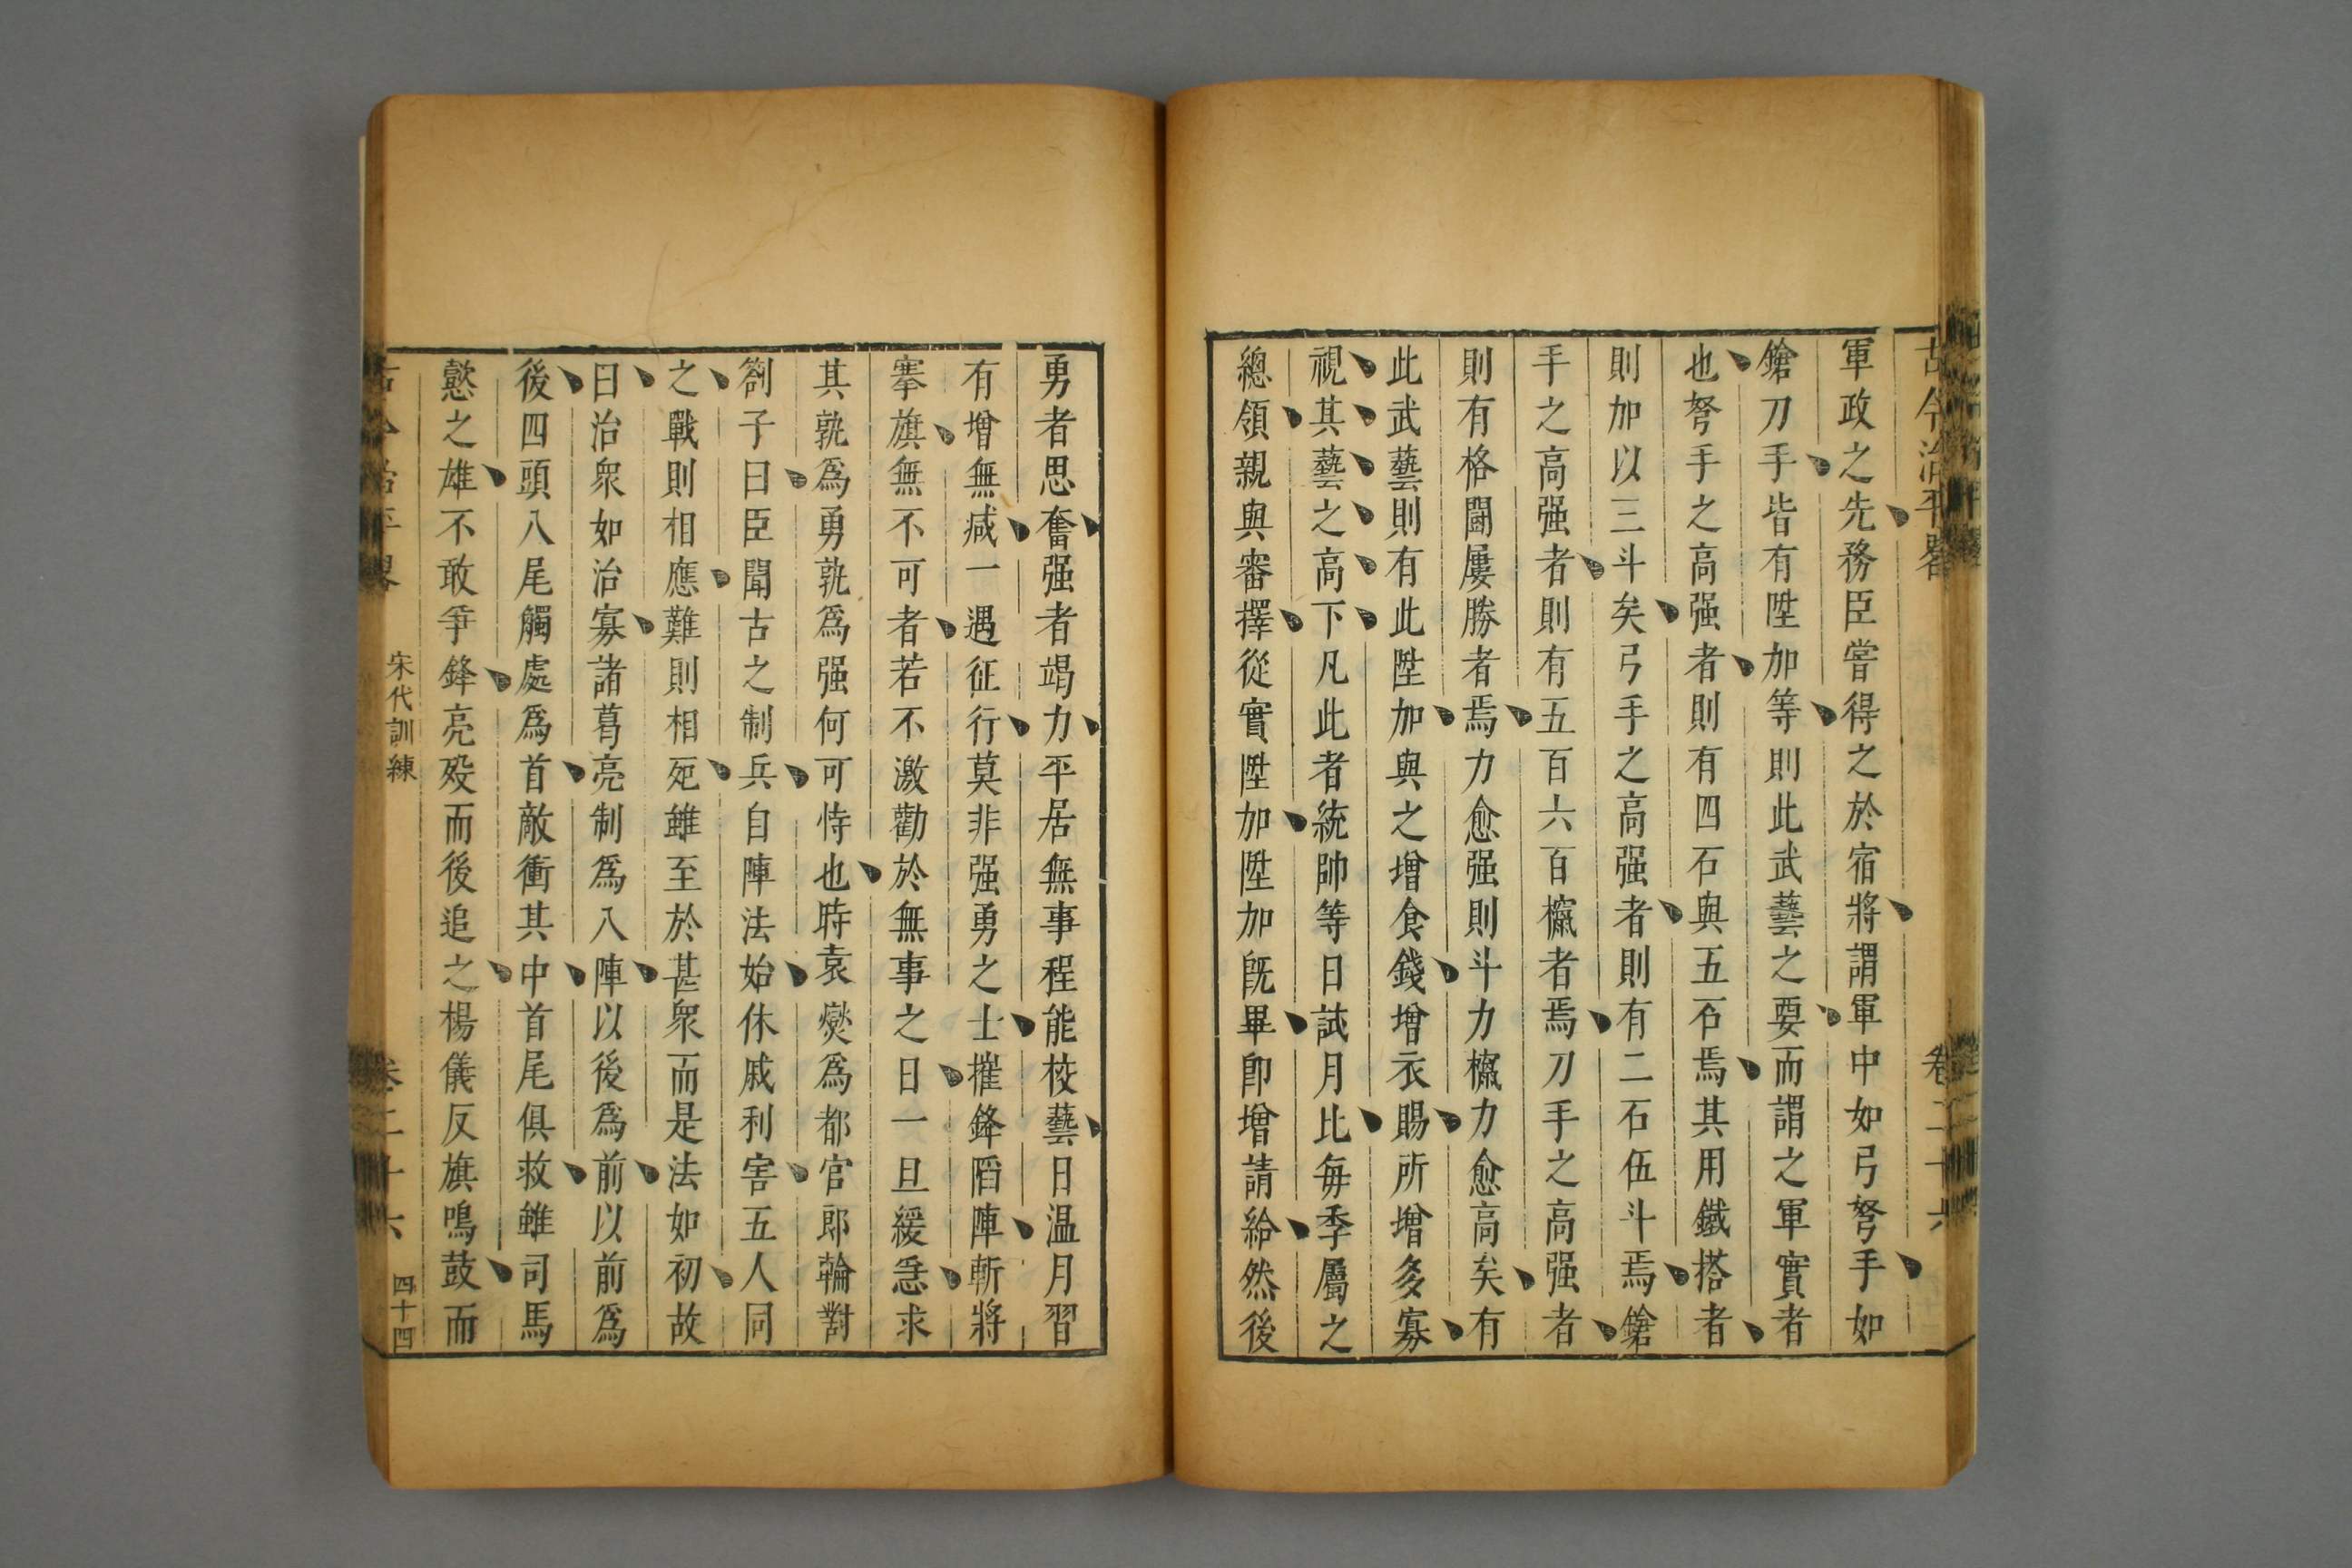 古今治平畧　卷二十六
軍政之先務臣嘗得之於宿將謂軍中如弓弩手如
鎗刀手皆有陞加等則此武藝之要而謂之軍實者
也弩手之高强者則有四石與五石焉其用鐵搭者
則加以三斗矣弓手之高强者則有二石伍斗焉鎗
手之高强者則有五百六百㰚者焉刀手之高强者
則有格鬪屢勝者焉力愈强則斗力㰚力愈高矣有
此武藝則有此陞加與之增食錢增衣賜所增多寡
視其藝之高下凡此者統帥等日試月比每季屬之
總領親與審擇從實陞加陞加旣畢卽增請給然後
勇者思奮强者竭力平居無事程能校藝日温月習
有增無减一遇征行莫非强勇之士摧鋒陷陣斬將
搴旗無不可者若不激勸於無事之日一旦緩急求
其孰爲勇孰爲强何可恃也時袁燮爲都官郎輪對
劄子曰臣聞古之制兵自陣法始休戚利害五人同
之戰則相應難則相死雖至於甚衆而是法如初故
曰治衆如治寡諸葛亮制爲八陣以後爲前以前爲
後四頭八尾觸處爲首敵衝其中首尾俱救雖司馬
懿之雄不敢爭鋒亮殁而後追之楊儀反旗鳴鼓而
古今治平畧　宋代訓練　卷二十六　四十四